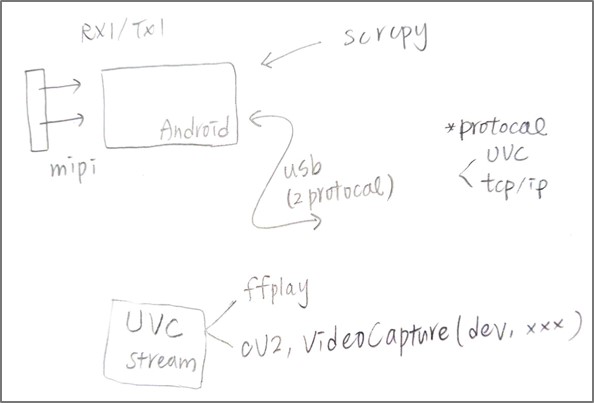 RX1/TX1
scrcpy
Android
mipi
usb
(2 protocal)
*protocal
UVC
tcp/ip
UVC
stream
ffplay
cv2, VideoCapture(dev, xxx)